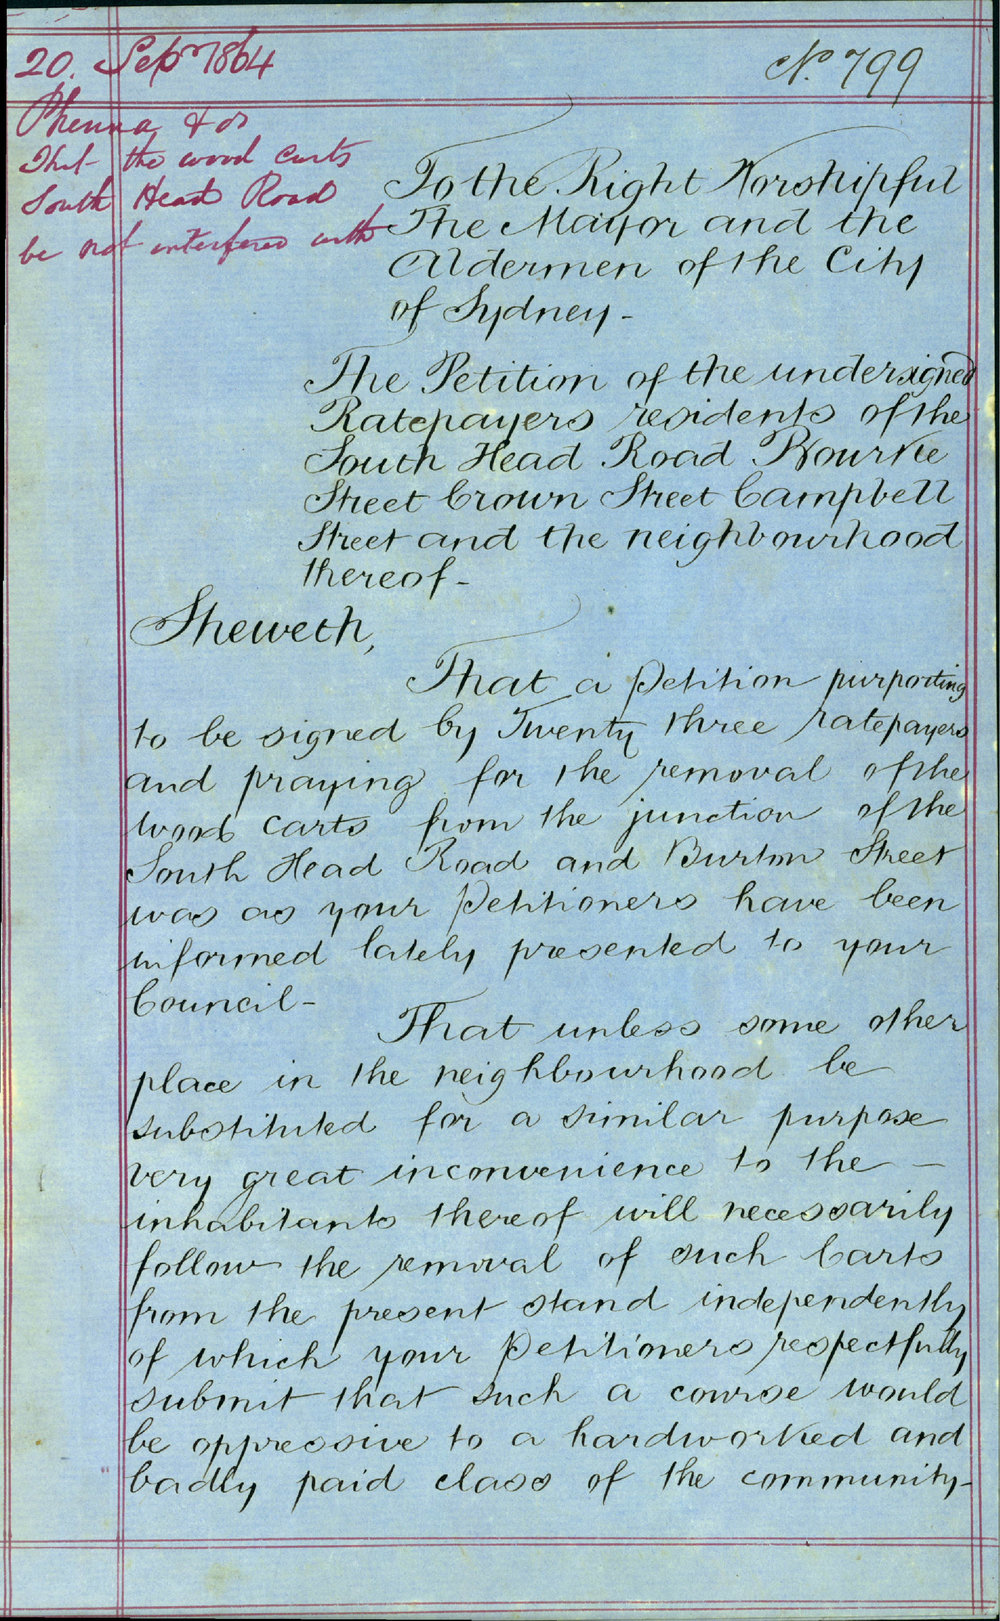 20. Sepr 1864
No. 799
Phenna & ors
That the wood carts
South Head Road
be not interfered with
To the Right Worshipful
The Mayor and the
Aldermen of the City
of Sydney -
The Petition of the undersigned
Ratepayers residents of the
South Head Road Bourke
Street Crown Street Campbell
Street and the neighbourhood
thereof -
Sheweth,
That a Petition purporting
to be signed by Twenty three ratepayers
and praying for the removal of the
wood carts from the junction of the
South Head Road and Burton Street
was as your Petitioners have been
informed lately presented to your
Council -
That unless some other
place in the neighbourhood be
substituted for a similar purpose
very great inconvenience to the -
inhabitants thereof will necessarily
follow the removal of such Carts
from the present stand independently
of which your Petitioners respectfully
submit that such a course would
be oppressive to a hardworked and
badly paid class of the community -